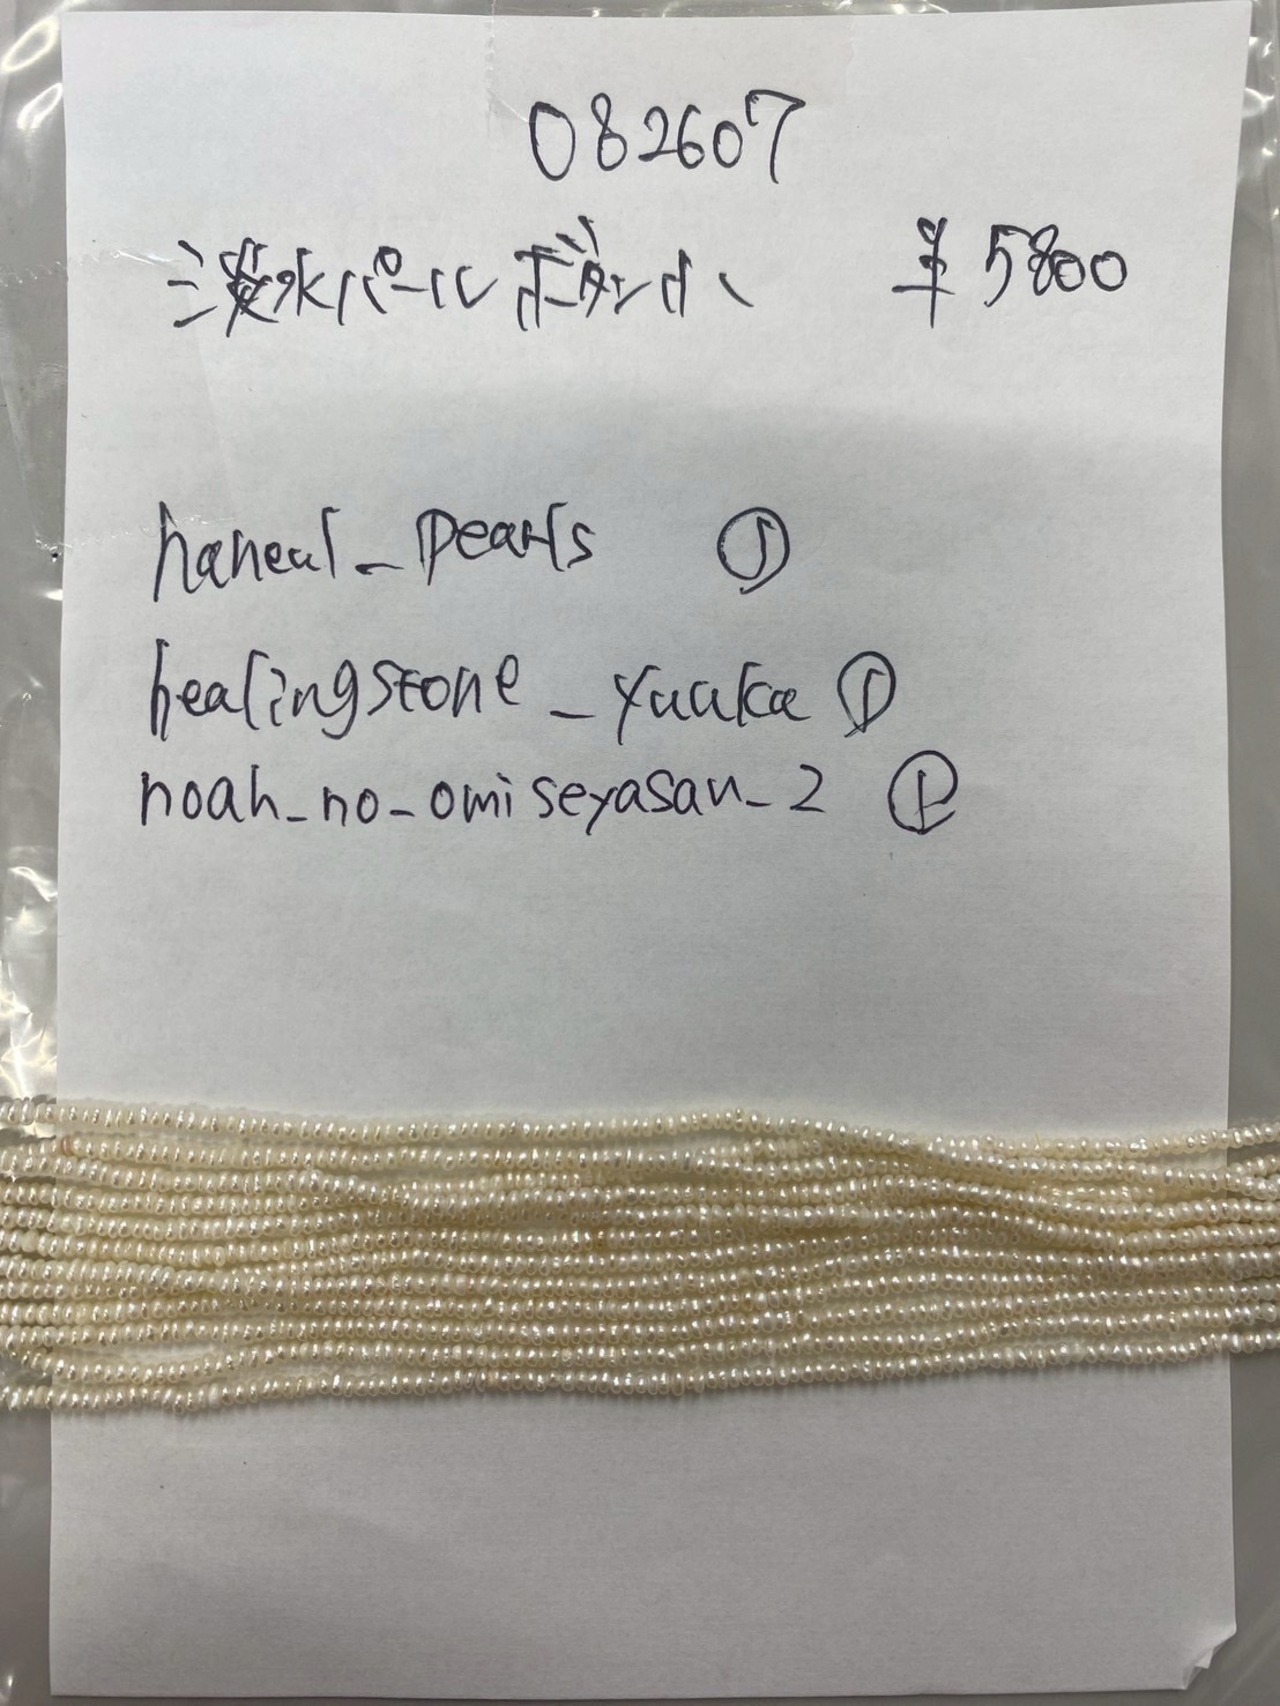 082607
淡水パールボタン小 ¥5800
haneul_pearls ①
healingstone_yuuka ①
noah_no_omiseyasan_2 ①